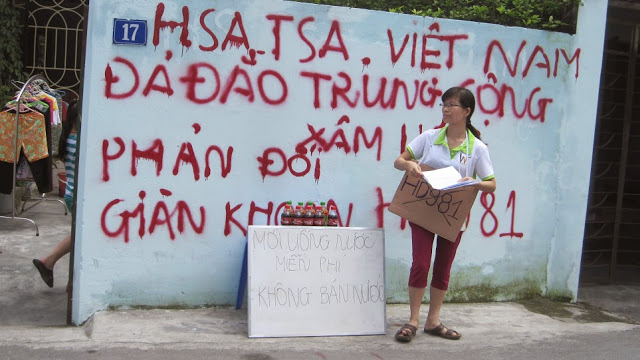 17
HSA.TSA. VIỆT NAM
ĐẢ ĐẢO TRUNG CỘNG
XÂM
PHẢN ĐỐI
GIÀN KHOAN
HD981
MỜI UỐNG NƯỚC
MIỄN PHÍ
KHÔNG BÁN NƯỚC